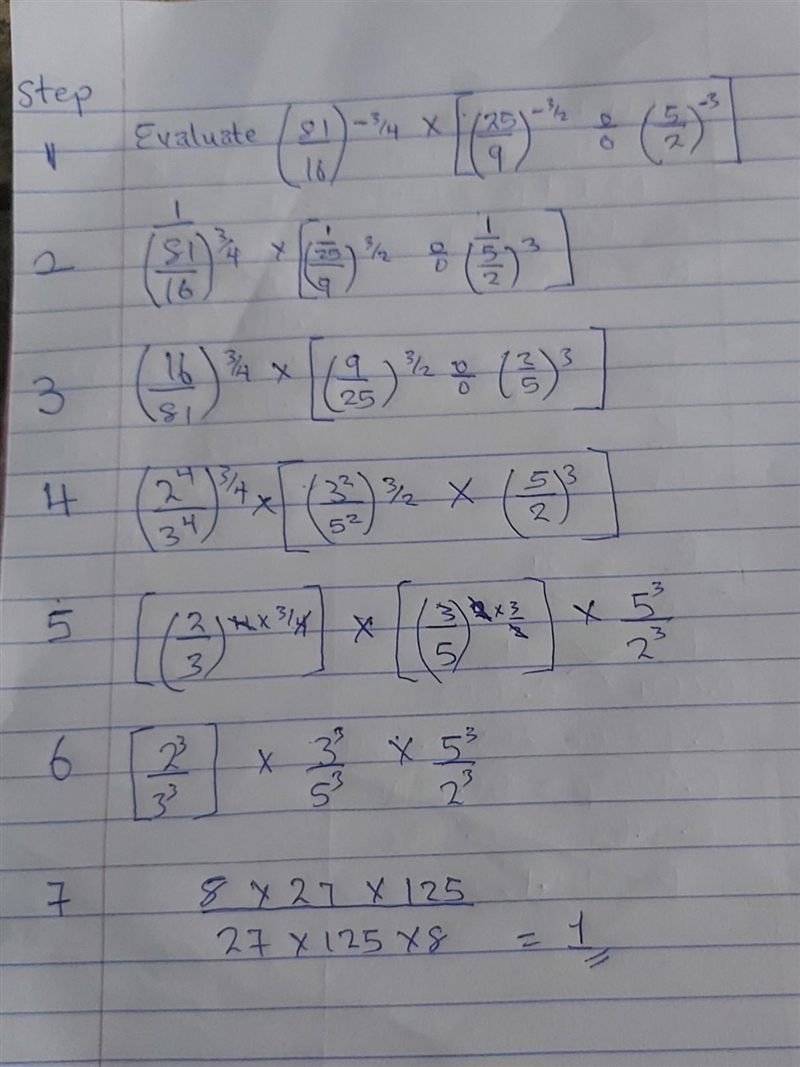 Step
1 Evaluate (81/16)^-3/4 × [(25/9)^-3/2 ÷ (5/2)^-3]
2 1/(81/16)^3/4 × [(1/25/9)^3/2 ÷ (1/5/2)^3]
3 (16/81)^3/4 × [(9/25)^3/2 ÷ (2/5)^3]
4 (2^4/3^4)^3/4 × [(3^2/5^2)^3/2 × (5/2)^3]
5 [(2/3)^4×3/4] × [(3/5)^2×3/2] × 5^3/2^3
6 [2^3/3^3] × 3^3/5^3 × 5^3/2^3
7 8 × 27 × 125 / 27 × 125 × 8 = 1